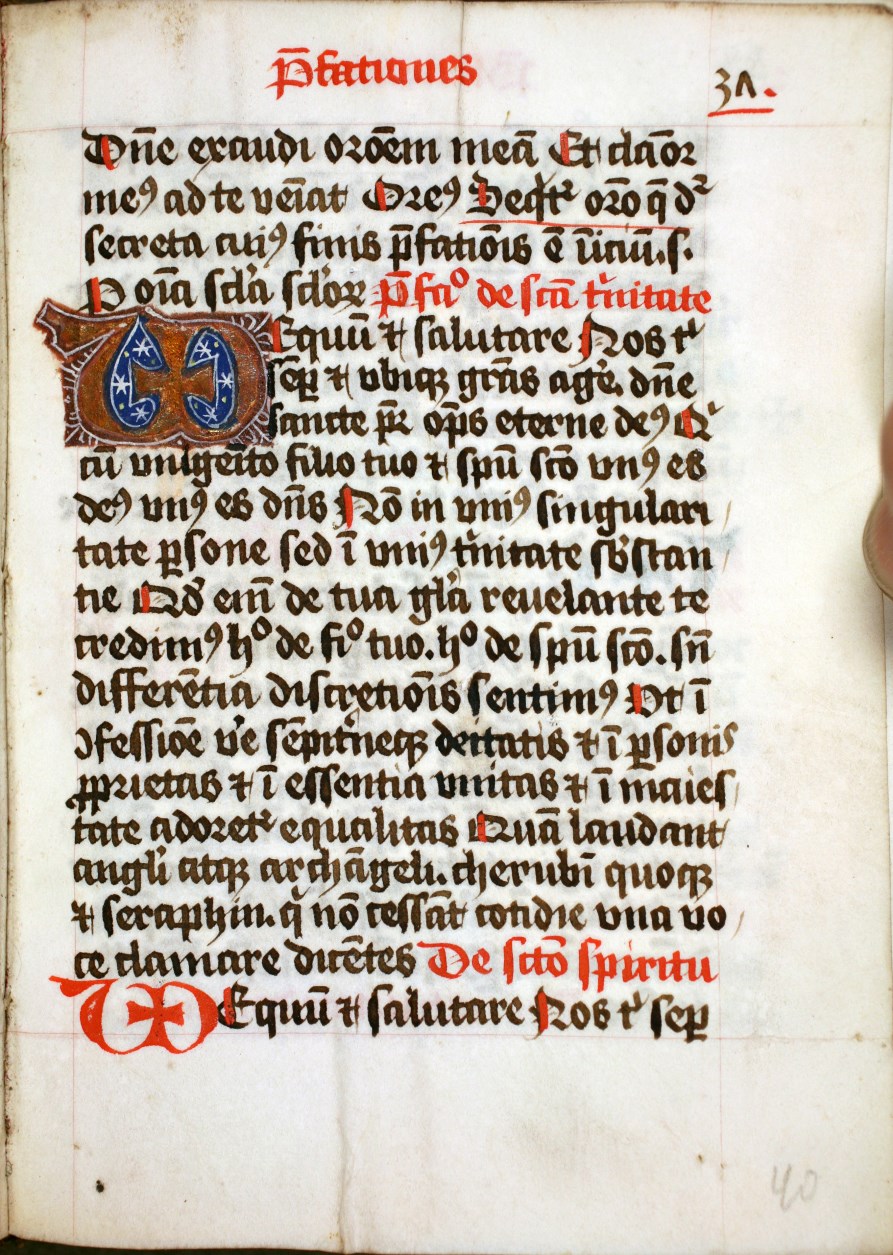 P̄fationes
3Λ.
Dn̄e exaudi oꝛōem meā Et clāoꝛ
meꝰ ad te vēiat Oꝛeꝰ Seqt̄ᷣ oꝛo q̄ dᷣ
secreta cuiꝰ finis p̄fatiōis ē ūiciū.s.
P oīa scl̄a scl̄oꝝ P̄faͦ de sctā tͥnitate
Equū ⁊ salutare Nos tᷣ
sēꝑ ⁊ vbiqꝫ gr̄as age᷑. dn̄e
sancte pr̄ op̄s eterne deꝰ Qͥ
cū vnigēito filio tuo ⁊ spū sc̄o vnꝰ es
deꝰ vnꝰ es dn̄s Nō in vniꝰ singulari
tate ꝑsone sed ī vniꝰ tͥnitate sb̄stan
tie Qd̄ eīn de tua gl̄a reuelante te
credimꝰ hͦ de fiͦ tuo. hͦ de spū sc̄o. sn̄
differētia discretiōis sentimꝰ Vt ī
ↄfessiōe ve᷑ sēpit᷑neqꝫ deitatis ⁊ ī ꝑsonis
ꝓprietas ⁊ ī essentia vnitas ⁊ ī maies
tate adoretᷣ equalitas Quā laudant
angl̄i atqꝫ archāgeli. cherubī quoqꝫ
⁊ seraphin. qͥ nō cessāt cotidie vna vo
ce clamare dicētes De sctō spiritu
VEquū ⁊ salutare Nos tᷣ seꝑ
40